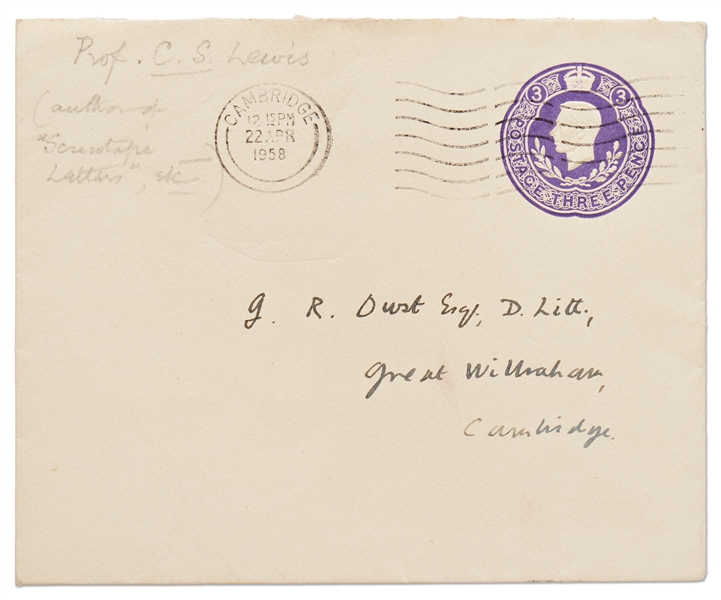 Prof. C. S. Lewis
(author of
"Screwtape
Letters", etc)
CAMBRIDGE
12.15PM
22 APR
1958
3 3
POSTAGE THREE PENCE
G. R. Owst Esq., D. Litt.,
Great Wilbraham,
Cambridge.